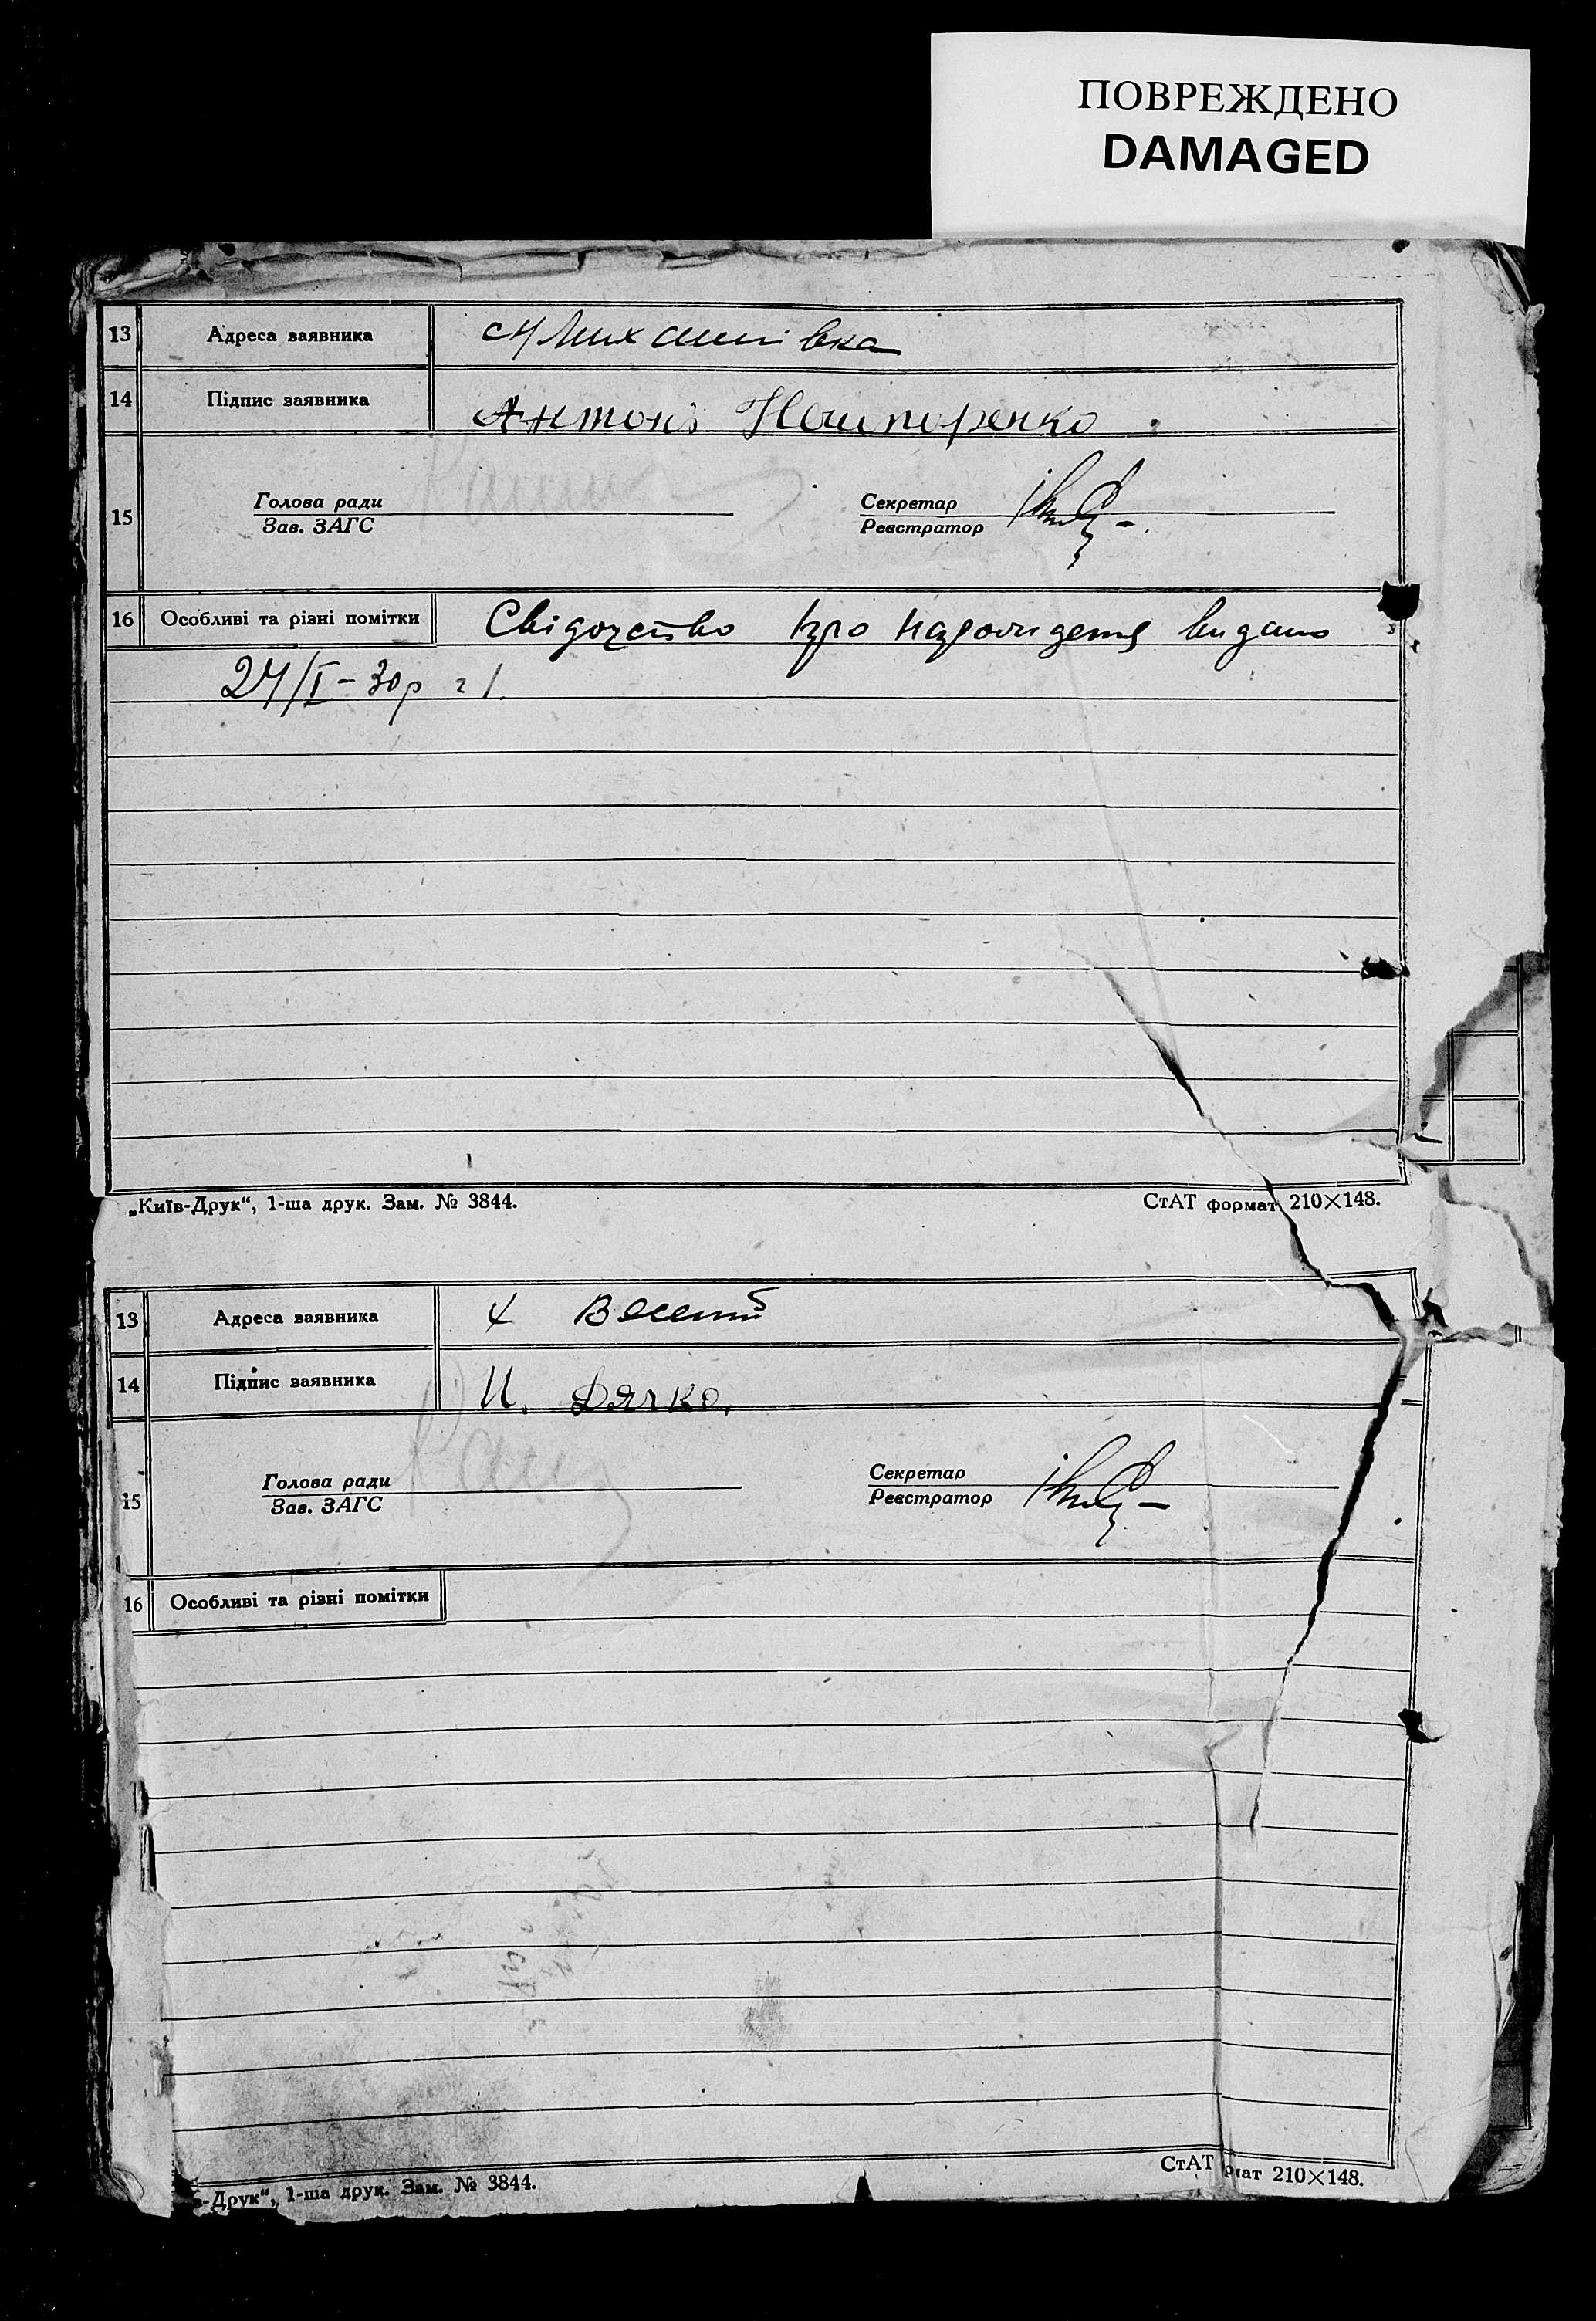 ПОВРЕЖДЕНО
DAMAGED
13 Адреса заявника Михайлівка
14 Підпис заявника Антон Нешпоренко
Голова ради Секретар
15
Зав. ЗАГС Реєстратор
16 Особливі та різні помітки Свідоцтво про народження видано
24/I-30р
„Київ-Друк“, 1-ша друк. Зам. № 3844. СтАТ формат 210×148.
13 Адреса заявника х
14 Підпис заявника И. Дячко.
Голова ради Секретар
15
Зав. ЗАГС Реєстратор
16 Особливі та різні помітки
-Друк“, 1-ша друк. Зам. № 3844. СтАТ рмат 210×148.